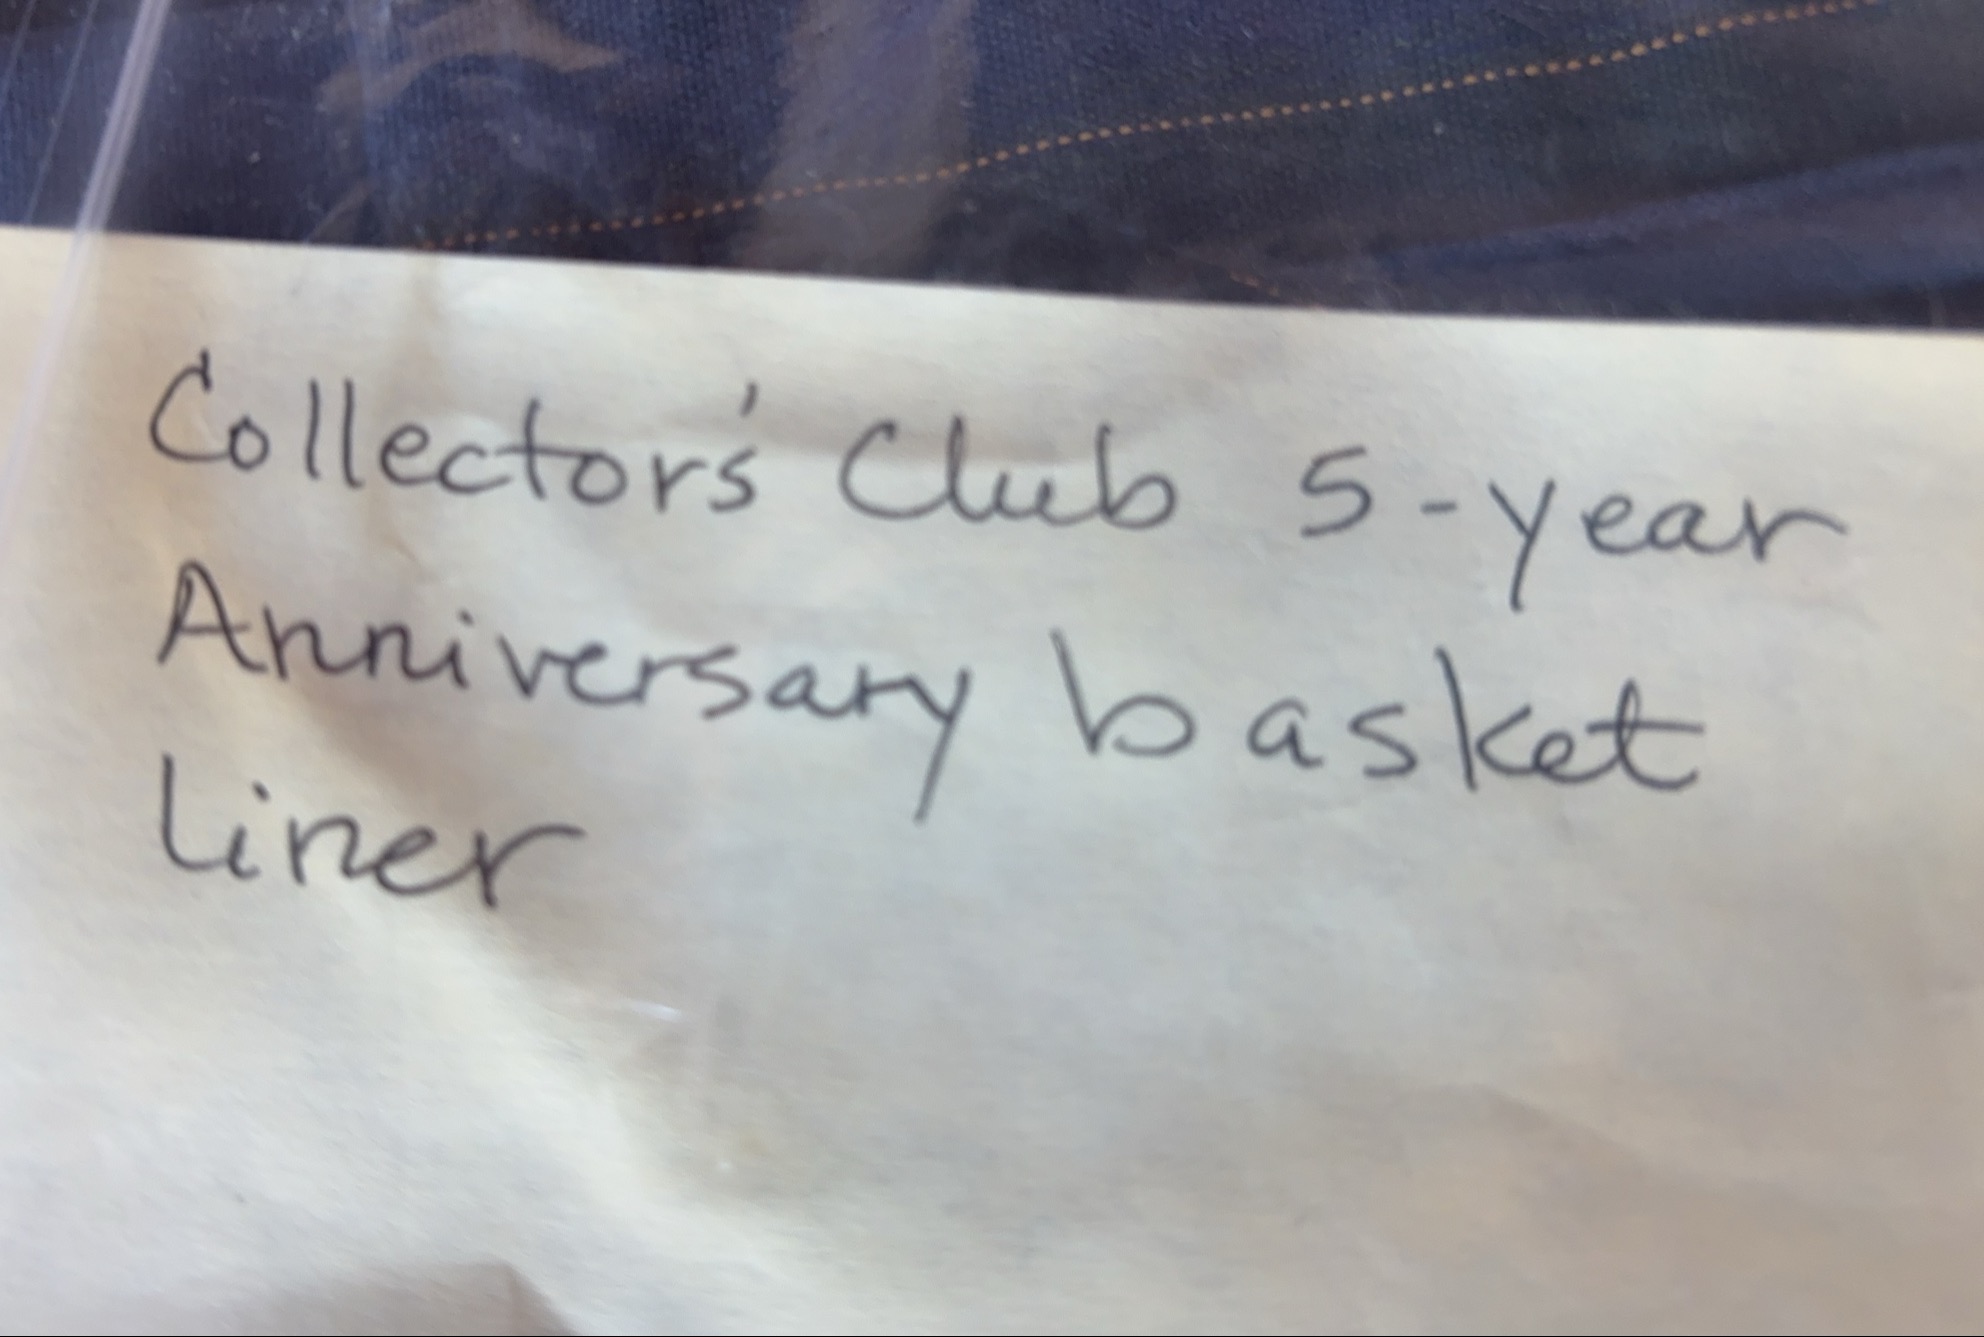 Collector's Club 5-year
Anniversary basket
liner